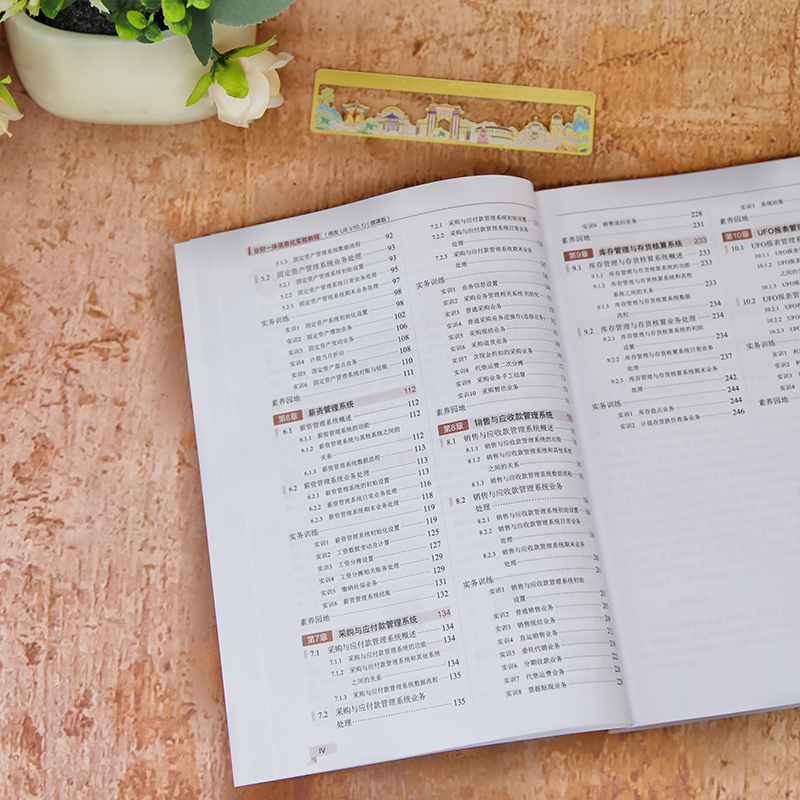 业财一体信息化实验教程（用友 U8 V10.1）（微课版）
5.1.3 固定资产管理系统数据流程 92
5.2 固定资产管理系统业务处理 93
5.2.1 固定资产管理系统初始设置 93
5.2.2 固定资产管理系统日常业务处理 95
5.2.3 固定资产管理系统期末业务处理 97
实务训练 98
实训1 固定资产系统初始化设置 98
实训2 固定资产增加业务 102
实训3 固定资产变动业务 106
实训4 计提当月折旧 108
实训5 固定资产盘点业务 108
实训6 固定资产管理系统对账与结账 110
素养园地 111
第6章 薪资管理系统 112
6.1 薪资管理系统概述 112
6.1.1 薪资管理系统的功能 112
6.1.2 薪资管理系统与其他系统之间的
关系 112
6.1.3 薪资管理系统数据流程 113
6.2 薪资管理系统业务处理 113
6.2.1 薪资管理系统的初始设置 113
6.2.2 薪资管理系统日常业务处理 116
6.2.3 薪资管理系统期末业务处理 118
实务训练 119
实训1 薪资管理系统初始化设置 119
实训2 工资数据变动及计算 125
实训3 工资分摊设置 127
实训4 工资分摊相关账务处理 129
实训5 缴纳社保业务 129
实训6 薪资管理系统结账 131
素养园地 132
第7章 采购与应付款管理系统 134
7.1 采购与应付款管理系统概述 134
7.1.1 采购与应付款管理系统的功能 134
7.1.2 采购与应付款管理系统和其他系统
之间的关系 134
7.1.3 采购与应付款管理系统数据流程 135
7.2 采购与应付款管理系统业务
处理 135
IV
7.2.1 采购与应付款管理系统初始设置
7.2.2 采购与应付款管理系统日常业务
处理
7.2.3 采购与应付款管理系统期末业务
处理
实务训练
实训1 业务信息设置
实训2 采购业务管理相关系统初始化
实训3 普通采购业务
实训4 普通采购业务逆操作(选做业务)
实训5 采购现结业务
实训6 采购退货业务
实训7 含现金折扣的采购业务
实训8 代垫运费二次分摊
实训9 采购业务手工结算
实训10 采购暂估业务
素养园地
第8章 销售与应收款管理系统
8.1 销售与应收款管理系统概述
8.1.1 销售与应收款管理系统的功能
8.1.2 销售与应收款管理系统和其他系统
之间的关系
8.1.3 销售与应收款管理系统数据流程
8.2 销售与应收款管理系统业务
处理
8.2.1 销售与应收款管理系统初始设置
8.2.2 销售与应收款管理系统日常业务
处理
8.2.3 销售与应收款管理系统期末业务
处理
实务训练
实训1 销售与应收款管理系统初始
设置
实训2 普通销售业务
实训3 销售现结业务
实训4 直运销售业务
实训5 委托代销业务
实训6 分期收款业务
实训7 代垫运费业务
实训8 票据贴现业务
实训9 销售退回业务 228
素养园地 231
第9章 库存管理与存货核算系统 233
9.1 库存管理与存货核算系统概述 233
9.1.1 库存管理与存货核算系统的功能 233
9.1.2 库存管理与存货核算系统和其他
系统之间的关系 234
9.1.3 库存管理与存货核算系统数据
流程 234
9.2 库存管理与存货核算系统业务处理 234
9.2.1 库存管理与存货核算系统的初始
设置 234
9.2.2 库存管理与存货核算系统日常业务
处理 237
9.2.3 库存管理与存货核算系统期末处理 242
实务训练 244
实训1 库存盘点业务 244
实训2 计提存货跌价准备业务 246
实训3 系统结账
素养园地
第10章 UFO报表管理
10.1 UFO报表管理
10.1.1 UFO
10.1.2
10.1.3
10.2 UFO报表管
10.2.1 UFO
10.2.2
实务训练
实训1
实训2
实训3
实训4
素养园地